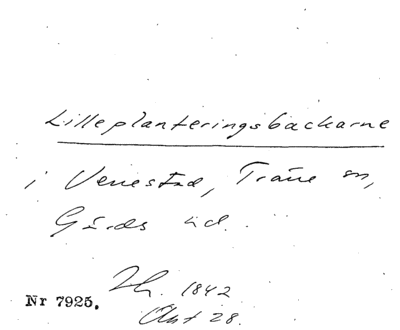 Lilleplanteringsbackarne
i Venestad, Träne sn,
Gärds hd.
Lh. 1842
Nr 7925.
Akt 28.